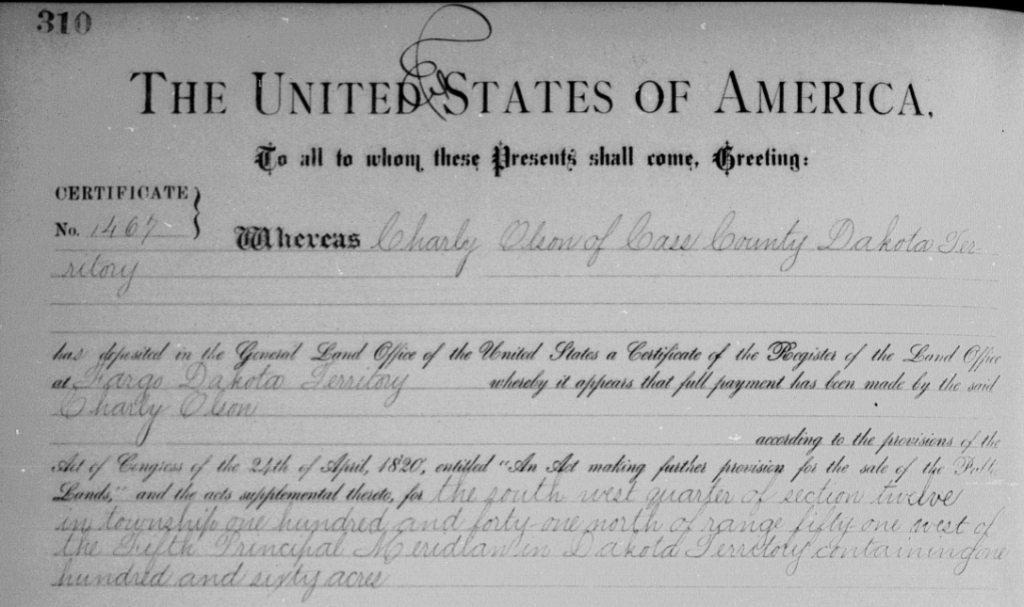 310
THE UNITED STATES OF AMERICA,
To all to whom these Presents shall come, Greeting:
CERTIFICATE
No. 1467
Whereas Charly Olson of Cass County Dakota Ter-
ritory
has deposited in the General Land Office of the United States a Certificate of the Register of the Land Office
at Fargo Dakota Territory whereby it appears that full payment has been made by the said
Charly Olson
according to the provisions of the
Act of Congress of the 24th of April, 1820, entitled "An Act making further provision for the sale of the Public
Lands," and the acts supplemental thereto, for the south west quarter of section twelve
in township one hundred and forty one north of range fifty one west of
the Fifth Principal Meridian in Dakota Territory containing one
hundred and sixty acres